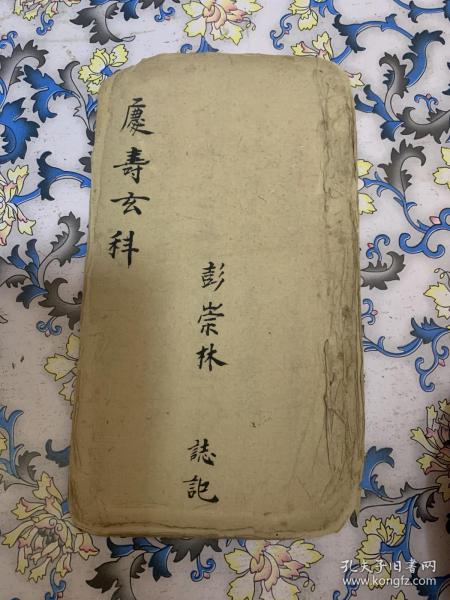 慶壽玄科
彭崇林 誌記
孔夫子旧书网
www.kongfz.com